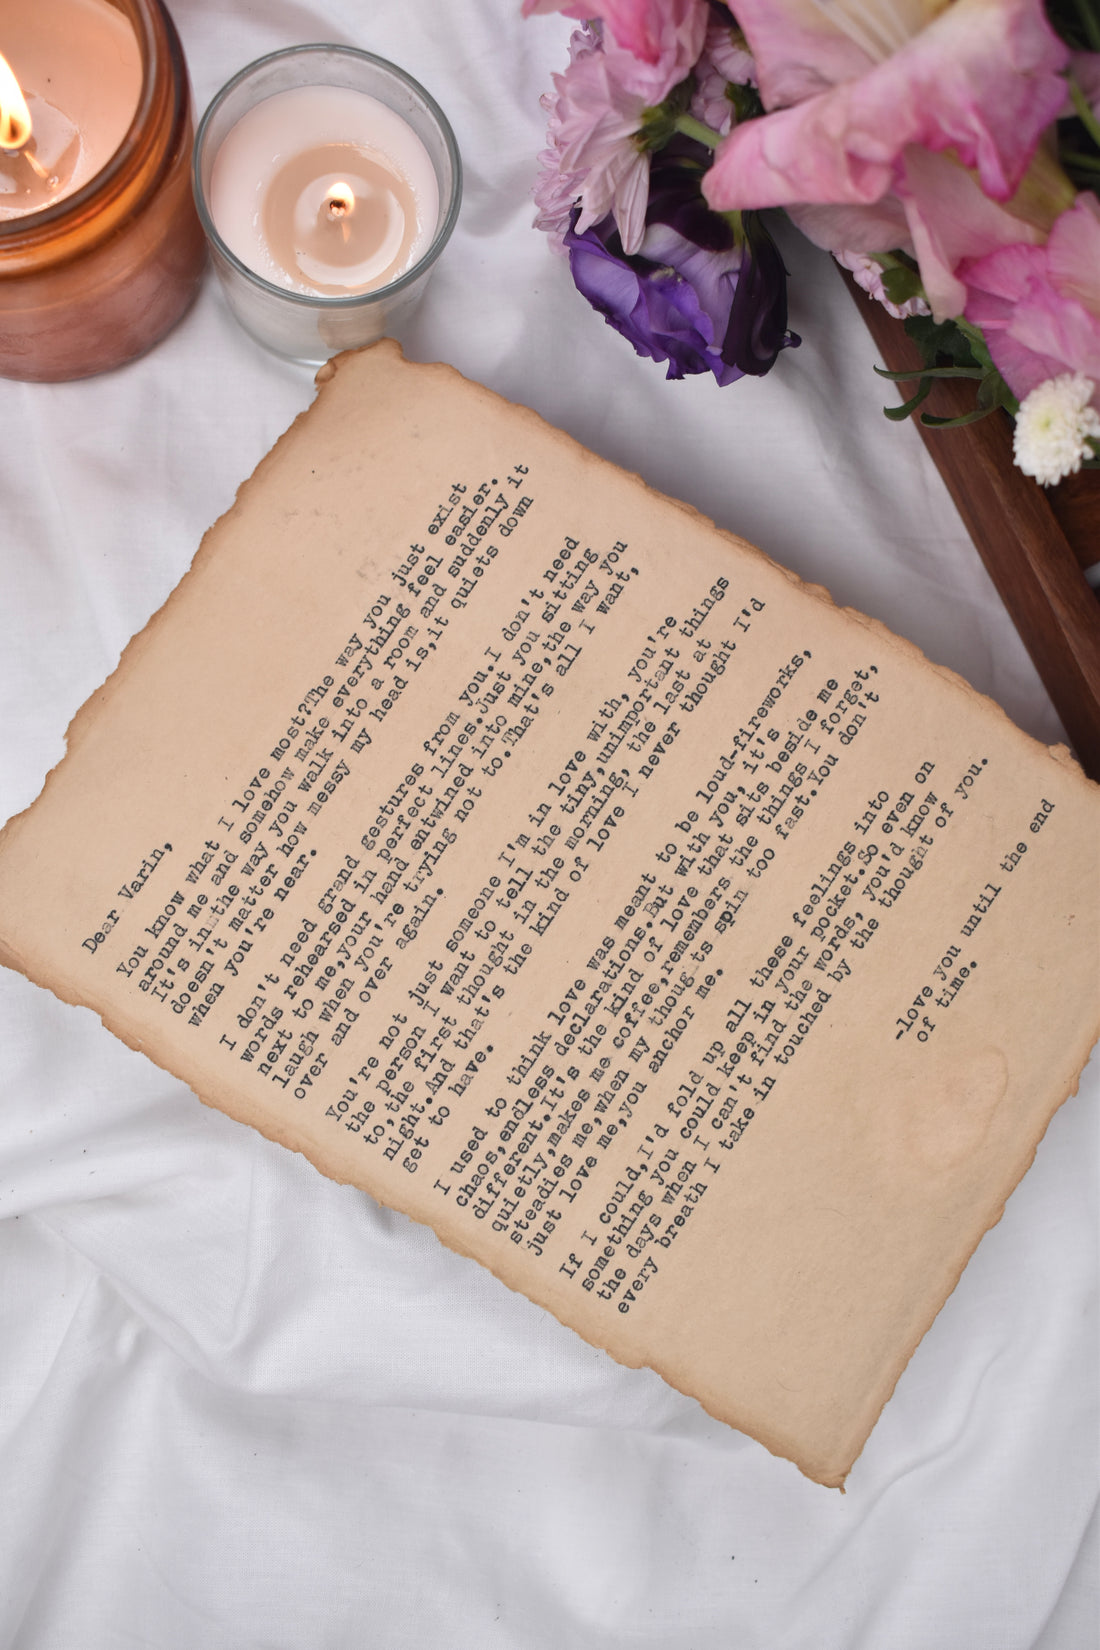 Dear Varin,
You know what I love most?The way you just exist
around me and somehow make everything feel easier.
It's in the way you walk into a room and suddenly it
doesn't matter how messy my head is,it quiets down
when you're near.
I don't need grand gestures from you.I don't need
words rehearsed in perfect lines.Just you sitting
next to me,your hand entwined into mine,the way you
laugh when you're trying not to.That's all I want,
over and over again.
You're not just someone I'm in love with, you're
the person I want to tell the tiny,unimportant things
to,the first thought in the morning, the last at
night.And that's the kind of love I never thought I'd
get to have.
I used to think love was meant to be loud-fireworks,
chaos,endless declarations.But with you, it's
different.It's the kind of love that sits beside me
quietly,makes me coffee,remembers the things I forget,
steadies me,when my thoughts spin too fast.You don't
just love me,you anchor me.
If I could,I'd fold up all these feelings into
something you could keep in your pocket.So even on
the days when I can't find the words, you'd know
every breath I take in touched by the thought of you.
-love you until the end
of time.